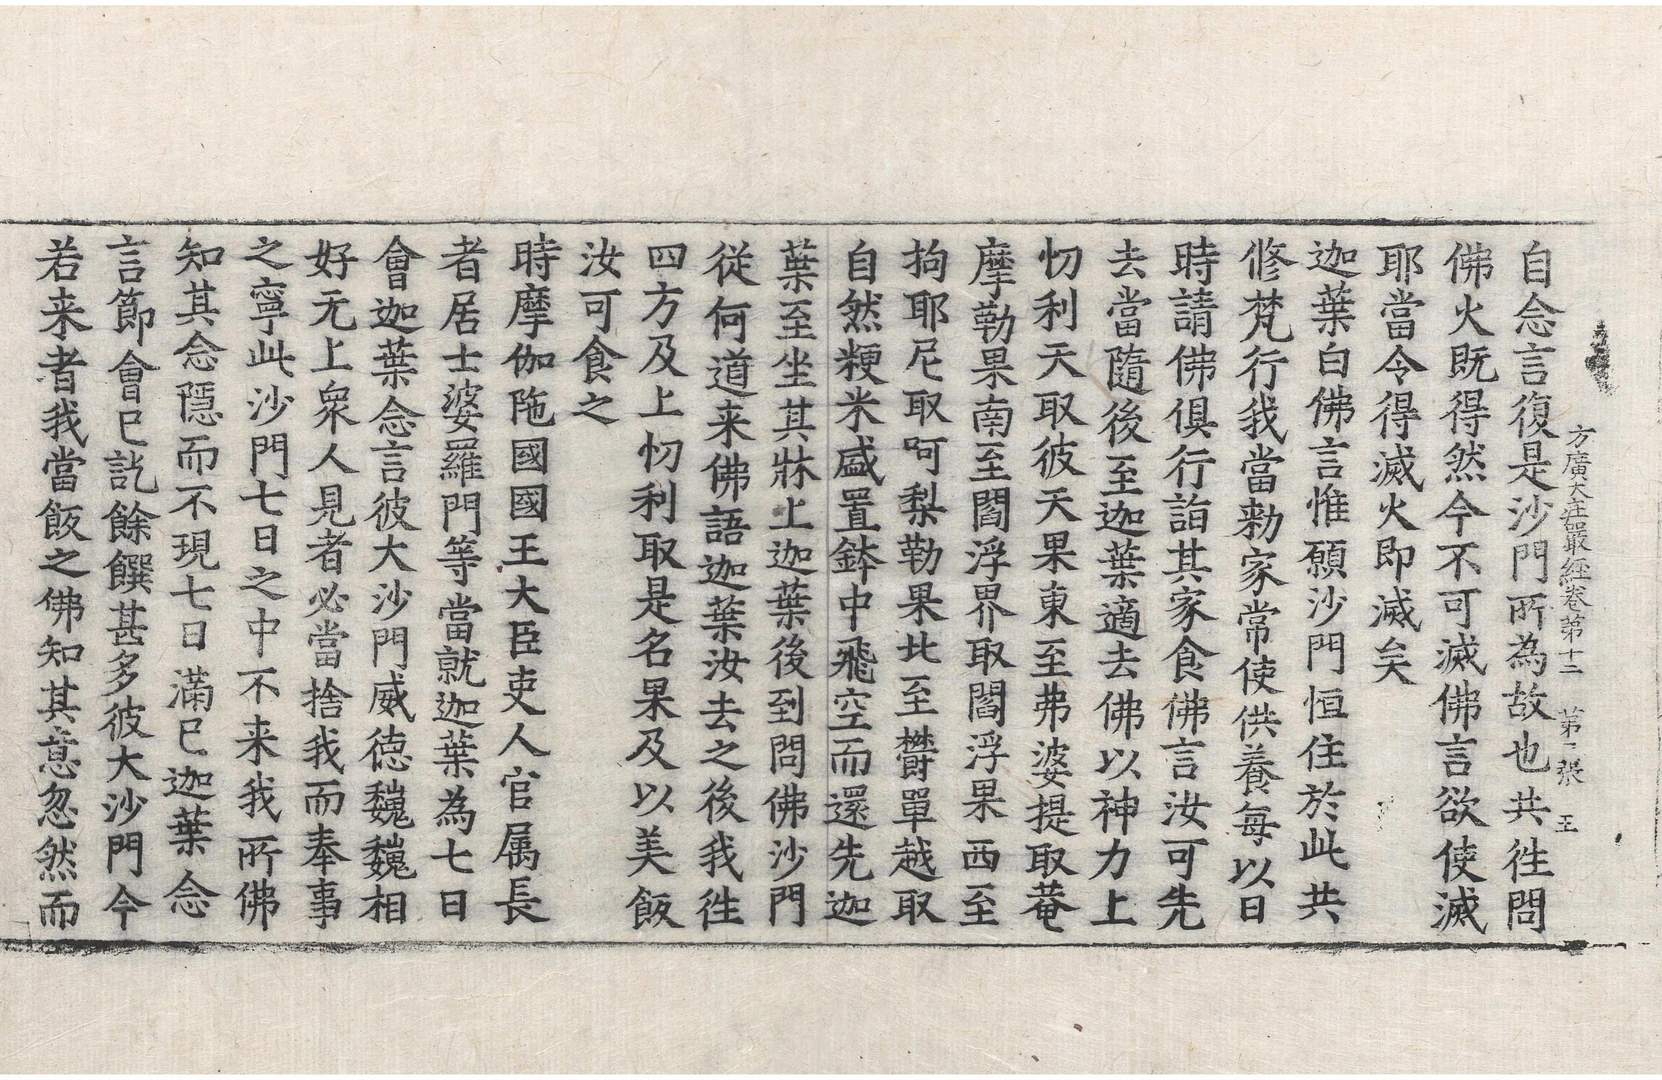 方廣大莊嚴經卷第十二　第二張　王
自念言復是沙門所為故也共往問
佛火既得然今不可滅佛言欲使滅
耶當令得滅火即滅矣
迦葉白佛言惟願沙門恒住於此共
修梵行我當勑家常使供養每以日
時請佛俱行詣其家食佛言汝可先
去當隨後至迦葉適去佛以神力上
忉利天取彼天果東至弗婆提取菴
摩勒果南至閻浮界取閻浮果西至
拘耶尼取呵梨勒果北至欝單越取
自然粳米盛置鉢中飛空而還先迦
葉至坐其牀上迦葉後到問佛沙門
從何道来佛語迦葉汝去之後我往
四方及上忉利取是名果及以美飯
汝可食之
時摩伽陁國國王大臣吏人官属長
者居士婆羅門等當就迦葉為七日
會迦葉念言彼大沙門威德巍巍相
好无上衆人見者必當捨我而奉事
之寧此沙門七日之中不来我所佛
知其念隱而不現七日滿已迦葉念
言節會已訖餘饌甚多彼大沙門今
若来者我當飯之佛知其意忽然而